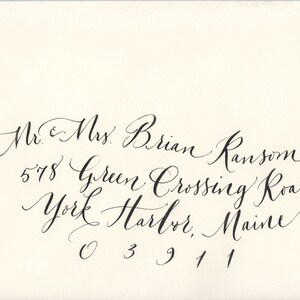 Mr. & Mrs. Brian Ransom
578 Green Crossing Roa
York Harbor, Maine
03911